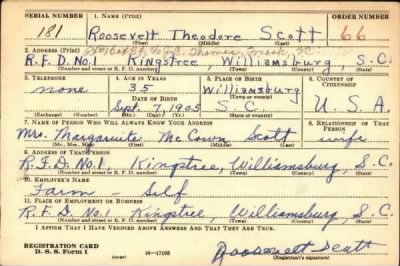 SERIAL NUMBER 1. NAME (Print) ORDER NUMBER
181 Roosevelt Theodore Scott 66
(First) (Middle) (Last)
2. ADDRESS (Print)
R.F.D. No.1 Kingstree, Williamsburg, S.C.
(Number and street or R. F. D. number) (Town) (County) (State)
3. TELEPHONE 4. AGE IN YEARS 5. PLACE OF BIRTH 6. COUNTRY OF CITIZENSHIP
none 35 Williamsburg
DATE OF BIRTH (Town or county)
Sept. 7, 1905 S.C. U.S.A.
(Exchange) (Number) (Mo.) (Day) (Yr.) (State or country)
7. NAME OF PERSON WHO WILL ALWAYS KNOW YOUR ADDRESS 8. RELATIONSHIP OF THAT PERSON
Mrs. Margurite McCown Scott wife
(Mr., Mrs., Miss) (First) (Middle) (Last)
9. ADDRESS OF THAT PERSON
R.F.D. No.1, Kingstree, Williamsburg, S.C.
(Number and street or R. F. D. number) (Town) (County) (State)
10. EMPLOYER'S NAME
Farm - Self
11. PLACE OF EMPLOYMENT OR BUSINESS
R.F.D. No.1 Kingstree, Williamsburg, S.C.
(Number and street or R. F. D. number) (Town) (County) (State)
I AFFIRM THAT I HAVE VERIFIED ABOVE ANSWERS AND THAT THEY ARE TRUE.
REGISTRATION CARD
D. S. S. Form 1 16-17105 Roosevelt Scott